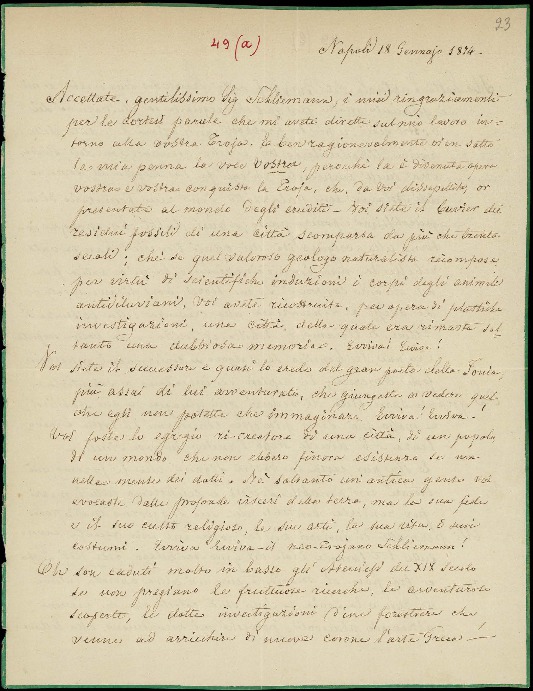 23
49 (a)
Napoli 18 Gennajo 1874.
Accettate, gentilissimo Sig Schliemann, i miei ringraziamenti
per le cortesi parole che mi avete dirette sul mio lavoro in-
torno alla vostra Troja. E ben ragionevolmente vien sotto
la mia penna la voce vostra, perchè la è divenuta opera
vostra e vostra conquista la Troja, che, da voi dissepellita, or
presentate al mondo degli eruditi - Voi siete il Cuvier dei
residui fossili di una città scomparsa da più che trenta
secoli; chè se quel valoroso geologo naturalista ricompose
per virtù di scientifiche induzioni i corpi degli animali
antidiluviani, Voi avete ricostruita, per opera di plastiche
investigazioni, una città della quale era rimasta sol-
tanto una dubbiosa memoria. Evviva! Evviva!
Voi siete il successore e quasi lo erede del gran poeta della Jonia,
più assai di lui avventurato, che giungeste a vedere quel
che egli non potette che immaginare. Evviva! Evviva!
Voi foste lo egregio ri-creatore di una città, di un popolo
di un mondo che non ebbero finora esistenza se non
nella mente dei dotti. Nè soltanto un'antica gente voi
evocaste dalle profonde visceri della terra, ma la sua fede
e il suo culto religioso, le sue arti, la sua vita, i suoi
costumi. Evviva Evviva il neo-trojano Schliemann!
Oh son caduti molto in basso gli Ateniesi del XIX secolo
se non pregiano le fruttuose ricerche, le avventurose
scoperte, le dotte investigazioni d'un forestiere che
venne ad arricchire di nuove corone l'arte Greca -